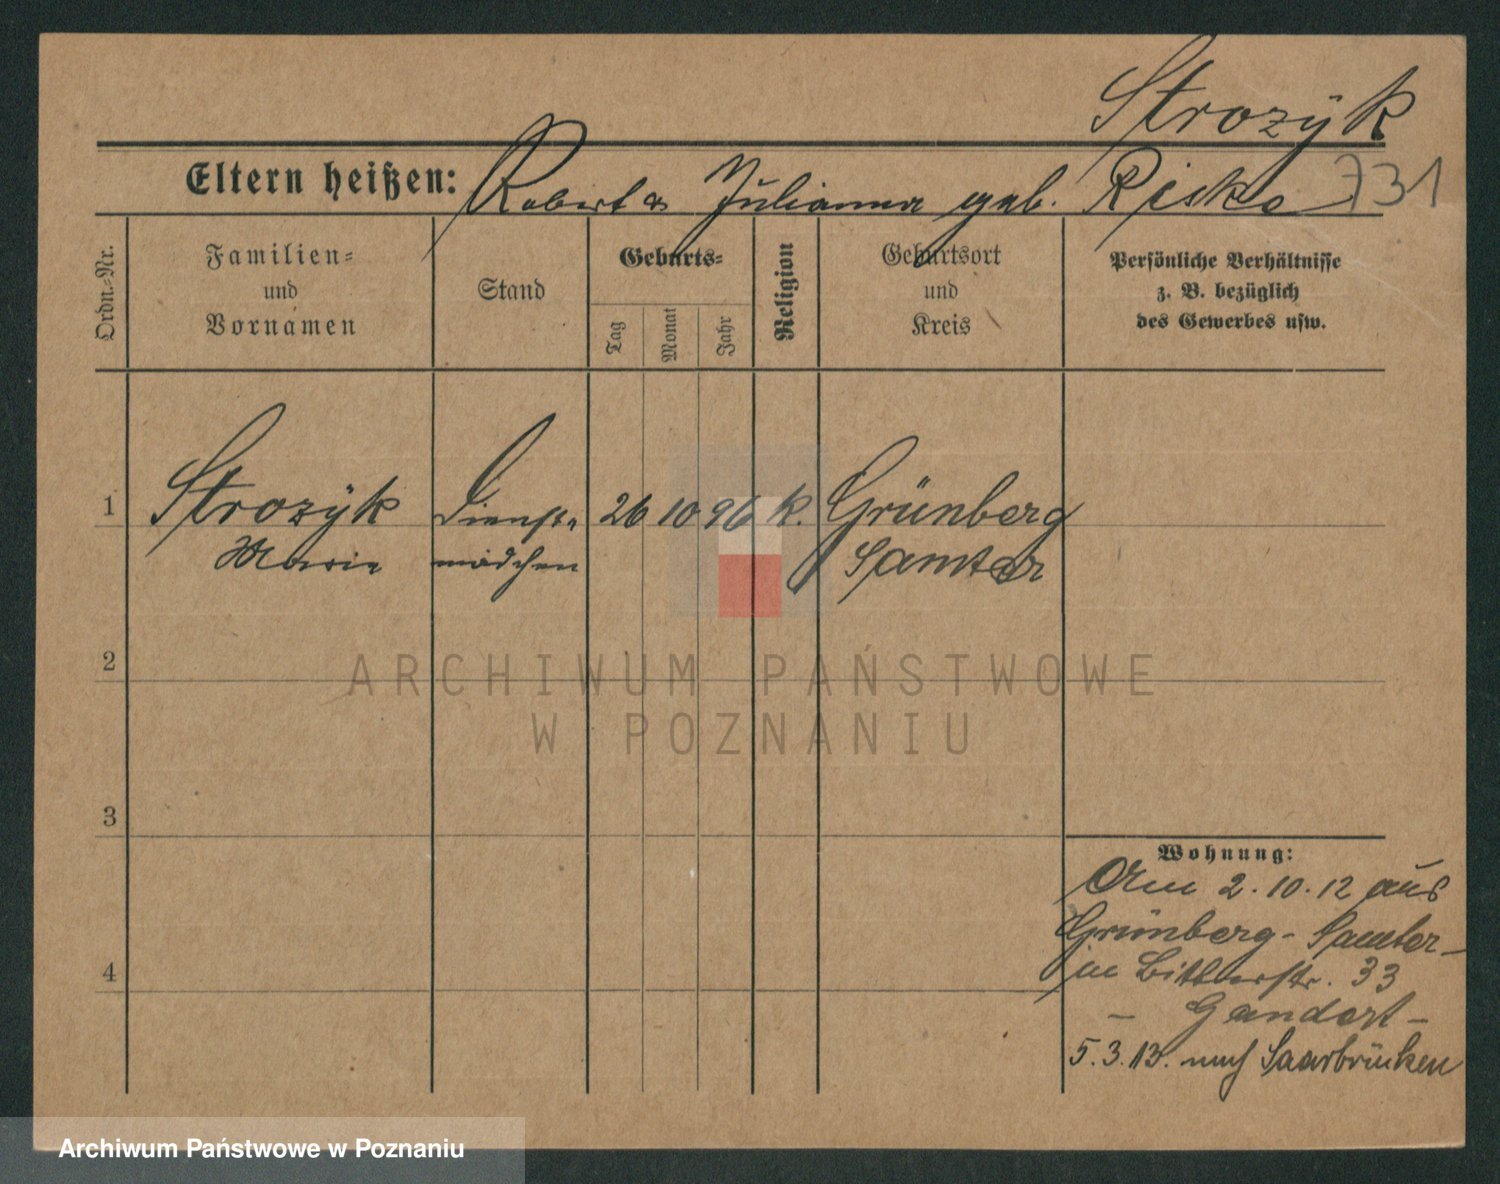 Strozÿk
Eltern heißen: Robert u Julianna geb. Riske 731
Ordn.-Nr.
Familien-
und
Vornamen
Stand
Geburts-
Tag
Monat
Jahr
Religion
Geburtsort
und
Kreis
Persönliche Verhältnisse
z. B. bezüglich
des Gewerbes usw.
1 Strozÿk Dienst- 26 10 96 k. Grünberg
Marie mädchen Samter
2
ARCHIWUM PAŃSTWOWE
W POZNANIU
3
Wohnung:
Am 2.10.12 aus
Grünberg-Samter-
in 33
4
5.3.13. nach Saarbrücken
Archiwum Państwowe w Poznaniu